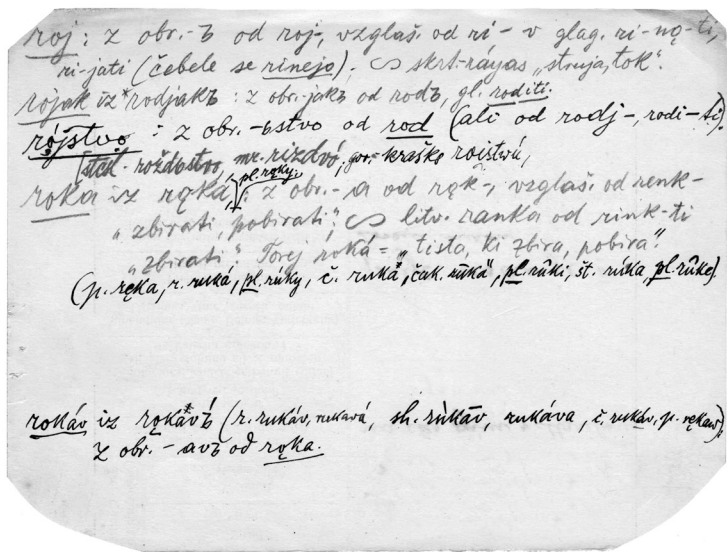 roj : z obr.-ъ od roj-, vzglaš. od ri- v glag. ri-nǫ-ti,
ri-jati (čebele se rinejo). ∽ skrt-ráyas „struja, tok“.
rojak iz *rodjakъ : z obr.-jakъ od rodъ, gl. roditi.
rójstvo : z obr.-ьstvo od rod (ali od rodj-, rodi-ti)
(stcsl. roždьstvo, mr. rizdvó, gor.-kraško
pl. rǫky.
roka iz rǫká, : z obr.-a od rǫk-, vzglaš. od renk-
„zbirati, pobirati“, ∽ litv. ranka od rink-ti
„zbirati“. Torej roká = „tisto, ki zbira, pobira“.
(p. ręka, r. ruká, pl. rúky, č. ruka, čak. rūkȁ, pl. rûki, št. rúka, pl. rûke).
rokáv iz rǫkávъ (r. rukáv, rukavá, sh. rùkāv, rukáva, č. rukáv, p. rękaw).
z obr.-avъ od rǫka.